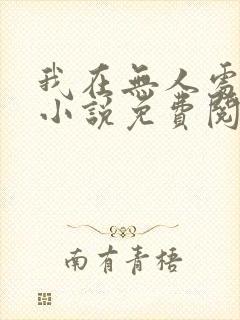 我在無人處
小說免費閱
南有青梧